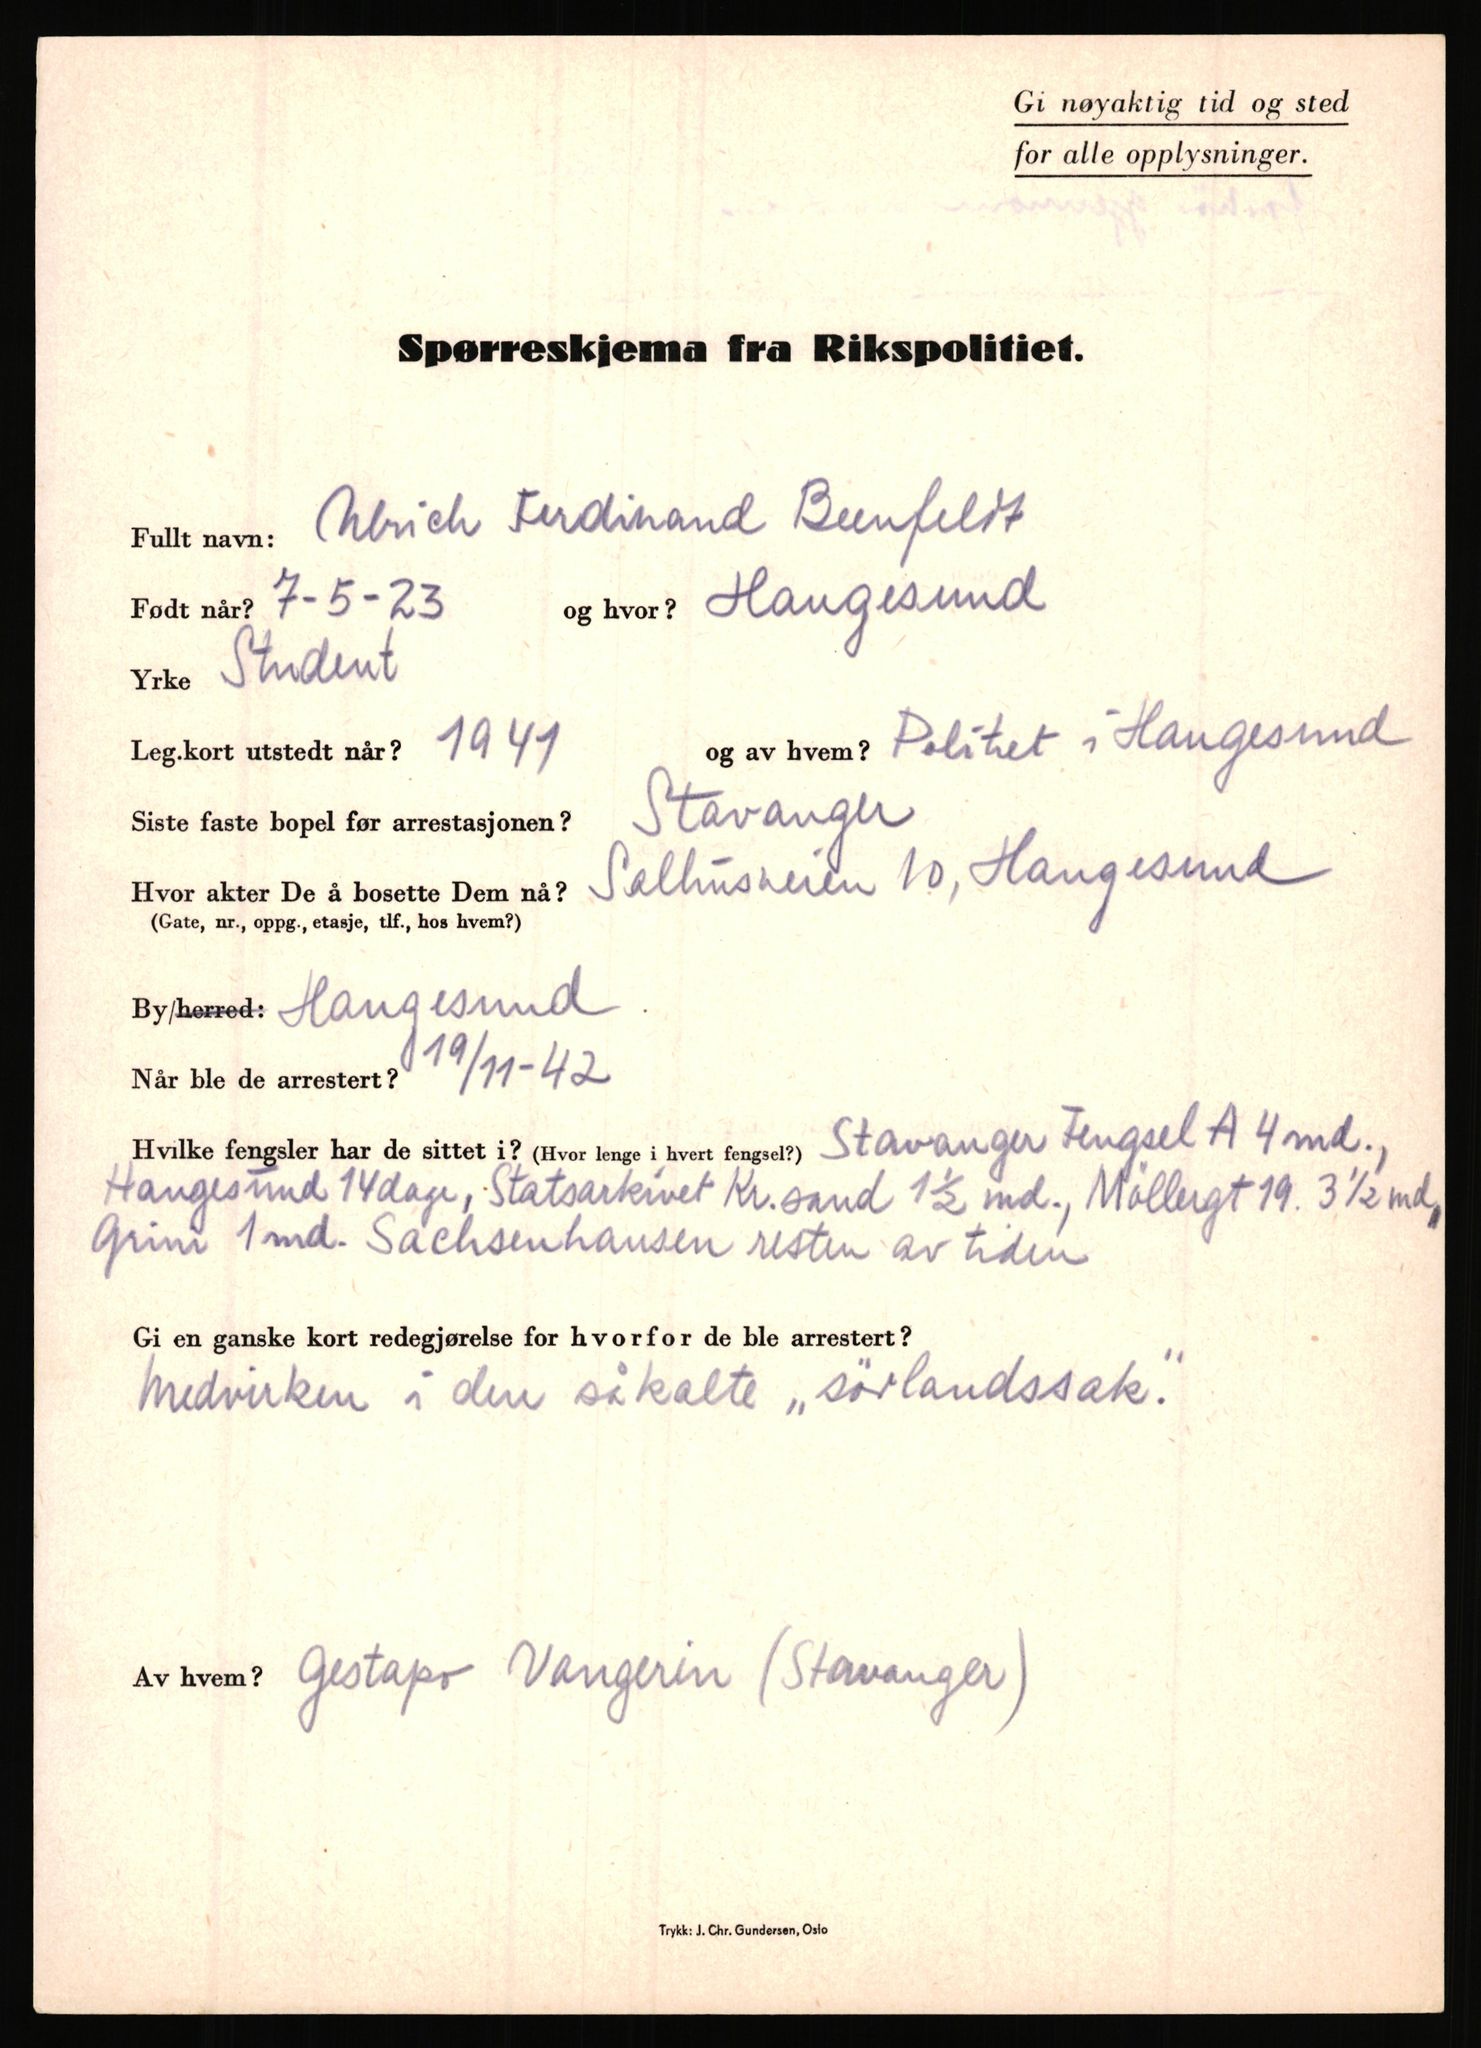 Gi nøyaktig tid og sted
for alle opplysninger.
Spørreskjema fra Rikspolitiet.
Fullt navn: Ulrich Ferdinand Beenfeldt
Født når? 7-5-23 og hvor? Haugesund
Yrke Student
Leg.kort utstedt når? 1941 og av hvem? Politiet i Haugesund
Siste faste bopel før arrestasjonen? Stavanger
Hvor akter De å bosette Dem nå? Salhusveien 10, Haugesund
(Gate, nr., oppg., etasje, tlf., hos hvem?)
By/herred: Haugesund
Når ble de arrestert? 19/11-42
Hvilke fengsler har de sittet i? (Hvor lenge i hvert fengsel?) Stavanger Fengsel A 4 md.,
Haugesund 14 dage, Statsarkivet Kr.sand 1½ md., Möllergt 19. 3½ md.,
Grini 1 md. Sachsenhausen resten av tiden
Gi en ganske kort redegjørelse for hvorfor de ble arrestert?
Medvirken i den såkalte „sörlandssak".
Av hvem? Gestapo Vangerin (Stavanger)
Trykk: J. Chr. Gundersen, Oslo